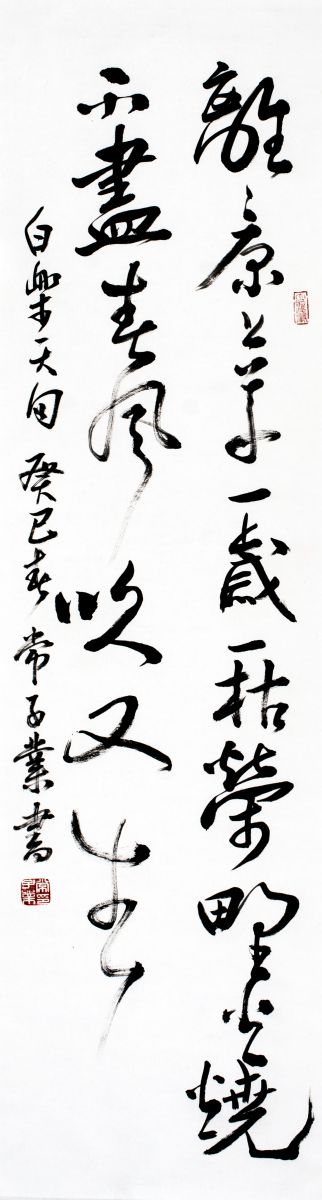 離〻原上草一歲一枯榮野火燒
不盡春風吹又生
白樂天句 癸巳春 常子業書